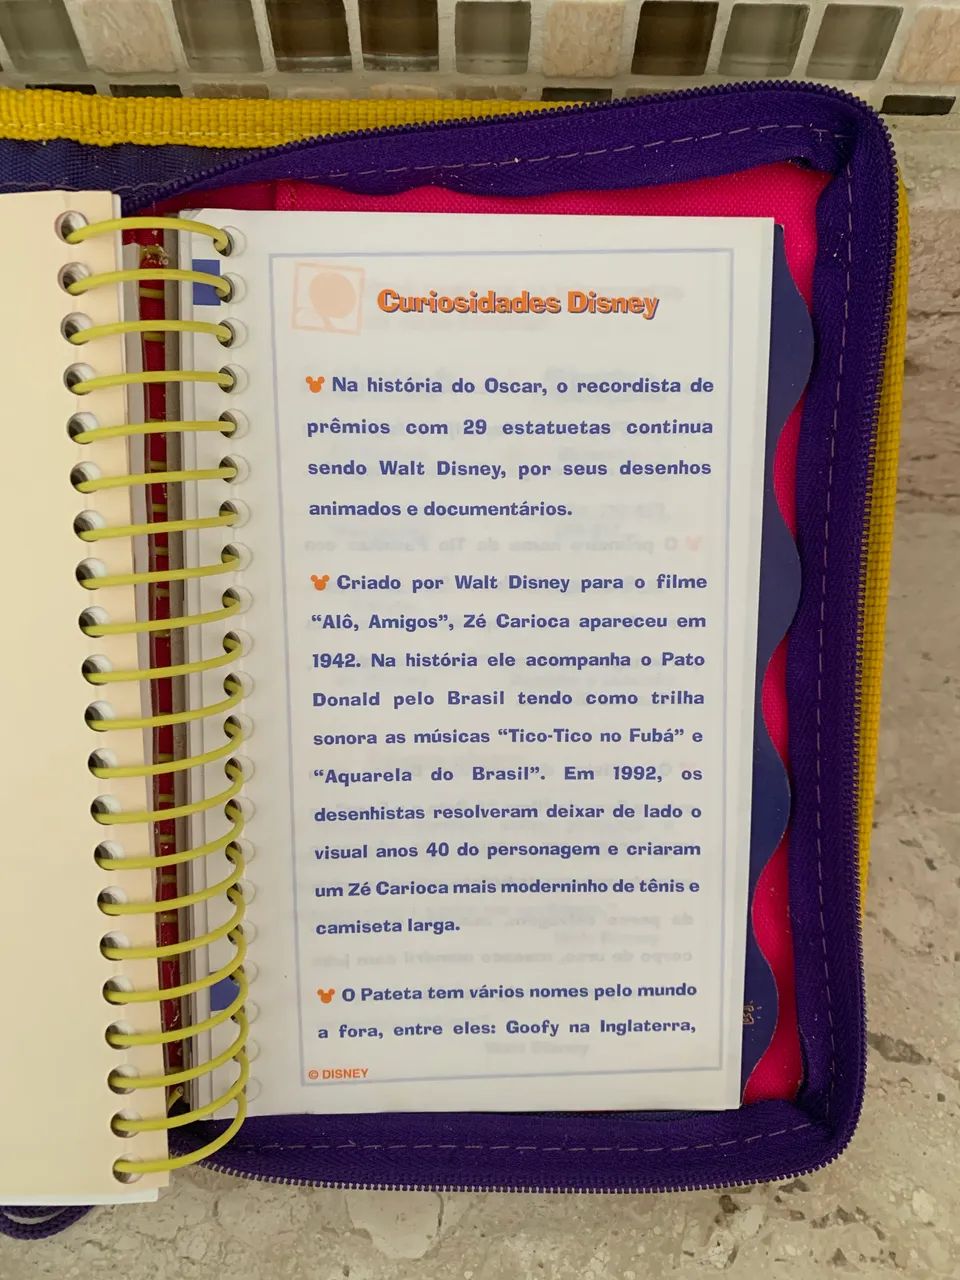 Curiosidades Disney
Na história do Oscar, o recordista de
prêmios com 29 estatuetas continua
sendo Walt Disney, por seus desenhos
animados e documentários.
Criado por Walt Disney para o filme
“Alô, Amigos”, Zé Carioca apareceu em
1942. Na história ele acompanha o Pato
Donald pelo Brasil tendo como trilha
sonora as músicas “Tico-Tico no Fubá” e
“Aquarela do Brasil”. Em 1992, os
desenhistas resolveram deixar de lado o
visual anos 40 do personagem e criaram
um Zé Carioca mais moderninho de tênis e
camiseta larga.
O Pateta tem vários nomes pelo mundo
a fora, entre eles: Goofy na Inglaterra,
© DISNEY